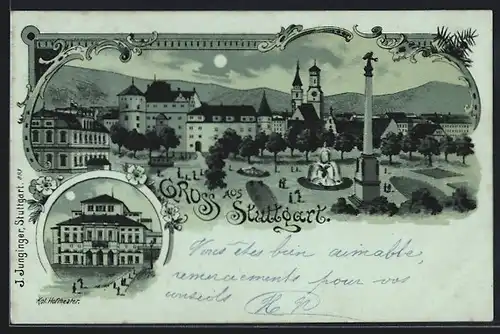 GROSS AUS
Stuttgart.
J. Junginger, Stuttgart.
Kgl. Hoftheater.
Vous êtes bien aimable,
remerciements pour vos
conseils